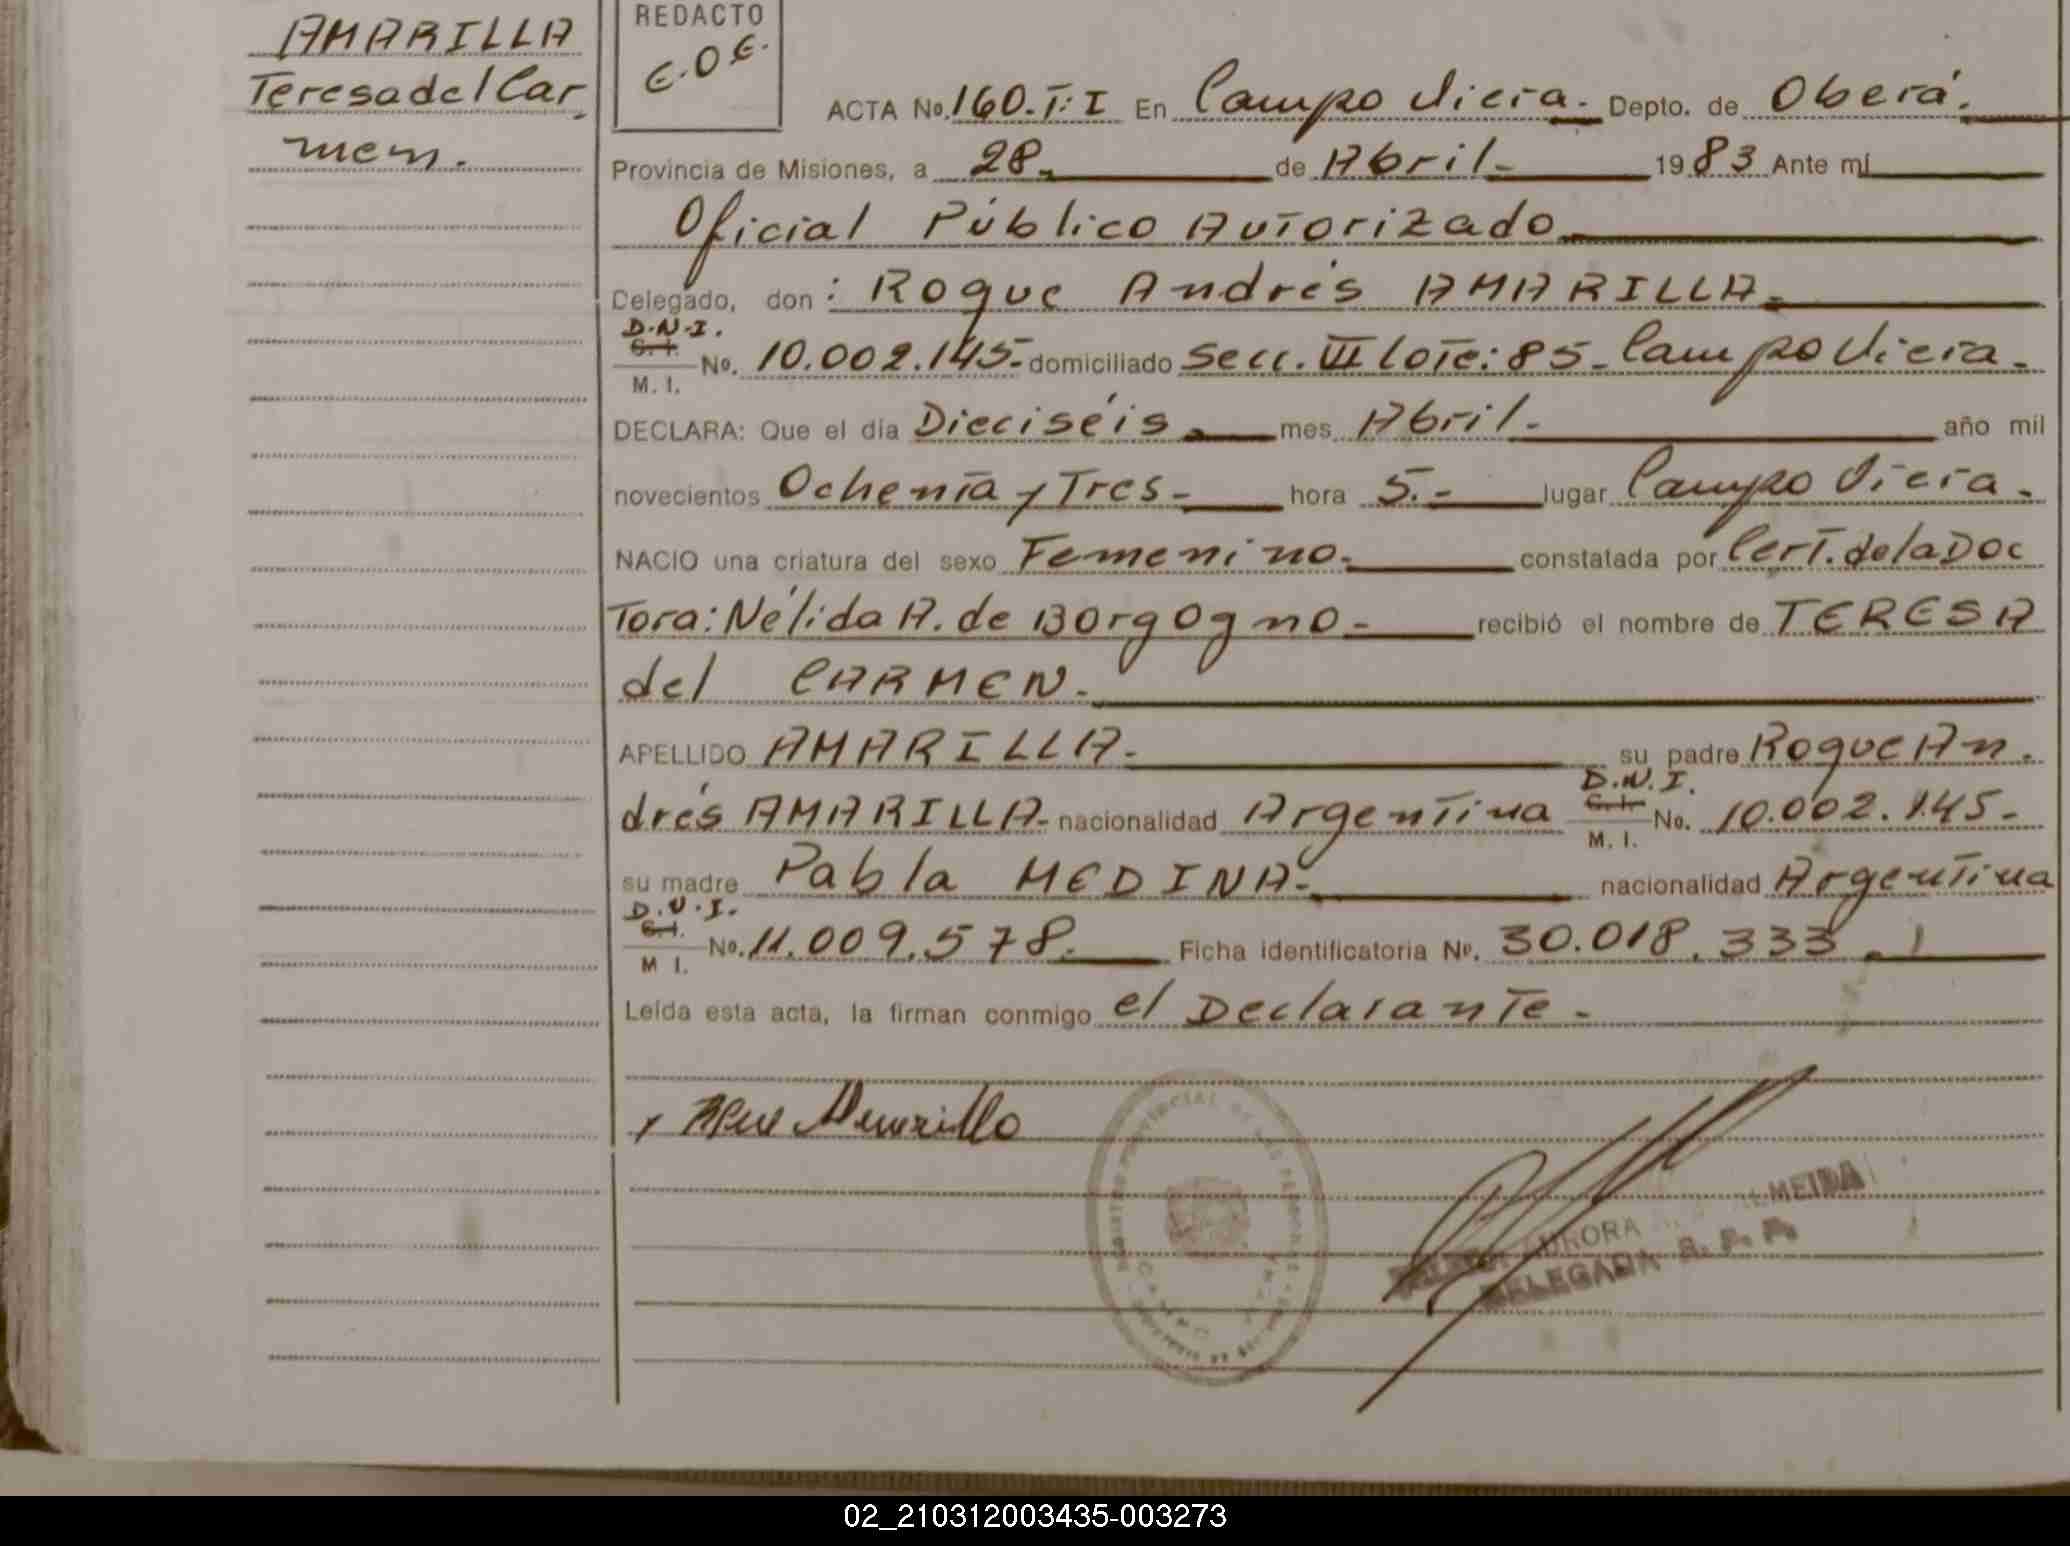 AMARILLA
Teresa del Car
men.
REDACTO
E.O.E.
ACTA No. 160. T: I En Campo Viera. Depto. de Oberá.
Provincia de Misiones, a 28. de Abril 1983 Ante mí
Oficial Público Autorizado
Delegado, don: Roque Andrés AMARILLA.
D.N.I.
C. I.
M. I.
No. 10.002.145- domiciliado Secc. III Lote: 85- Campo Viera.
DECLARA: Que el día Dieciséis mes Abril. año mil
novecientos Ochenta y Tres- hora 5.- lugar Campo Viera.
NACIO una criatura del sexo Femenino. constatada por Cert. de la Doc
Tora: Nélida A. de Borgogno- recibió el nombre de TERESA
del CARMEN.
APELLIDO AMARILLA- su padre Roque An.
D.N.I.
C. I.
M. I.
drés AMARILLA- nacionalidad Argentina No. 10.002.145-
su madre Pabla MEDINA- nacionalidad Argentina
D.N.I.
C. I.
M I.
No. 11.009.578. Ficha identificatoria Nº. 30.018.333.
Leída esta acta, la firman conmigo el Declarante.
AURORA ALMEIDA
DELEGADA R. P. P.
02_210312003435-003273